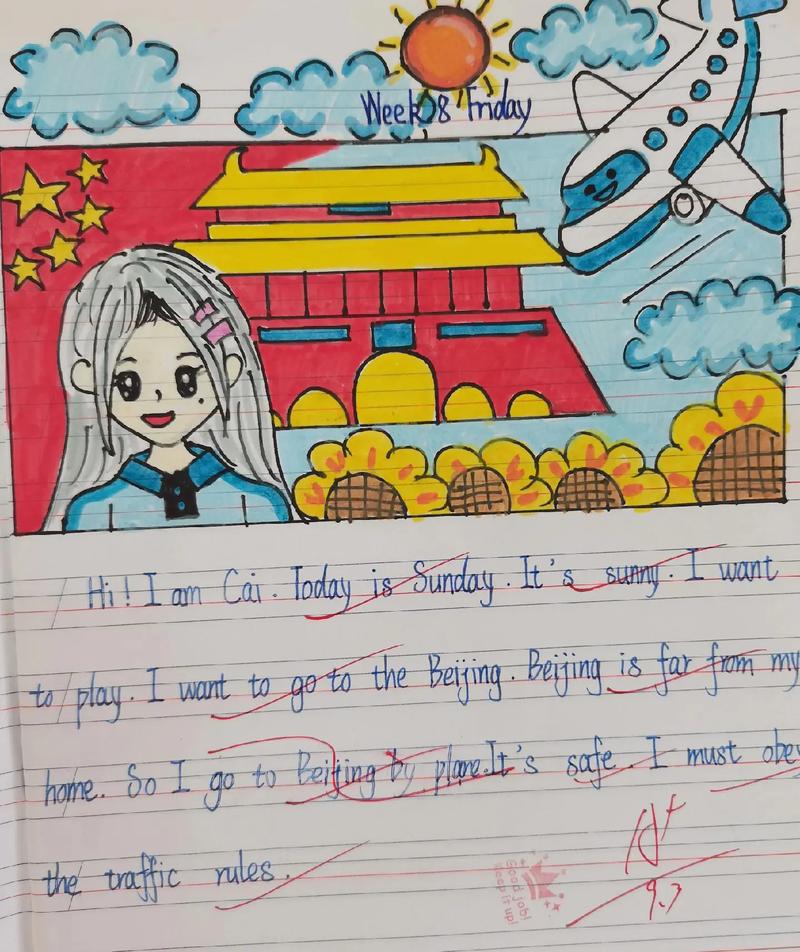 Week 8 Friday
Hi! I am Cai. Today is Sunday. It's sunny. I want
to play. I want to go to the Beijing. Beijing is far from my
home. So I go to Beijing by plane. It's safe. I must obey
the traffic rules.
A+
9.7
Good job!
Keep it up!